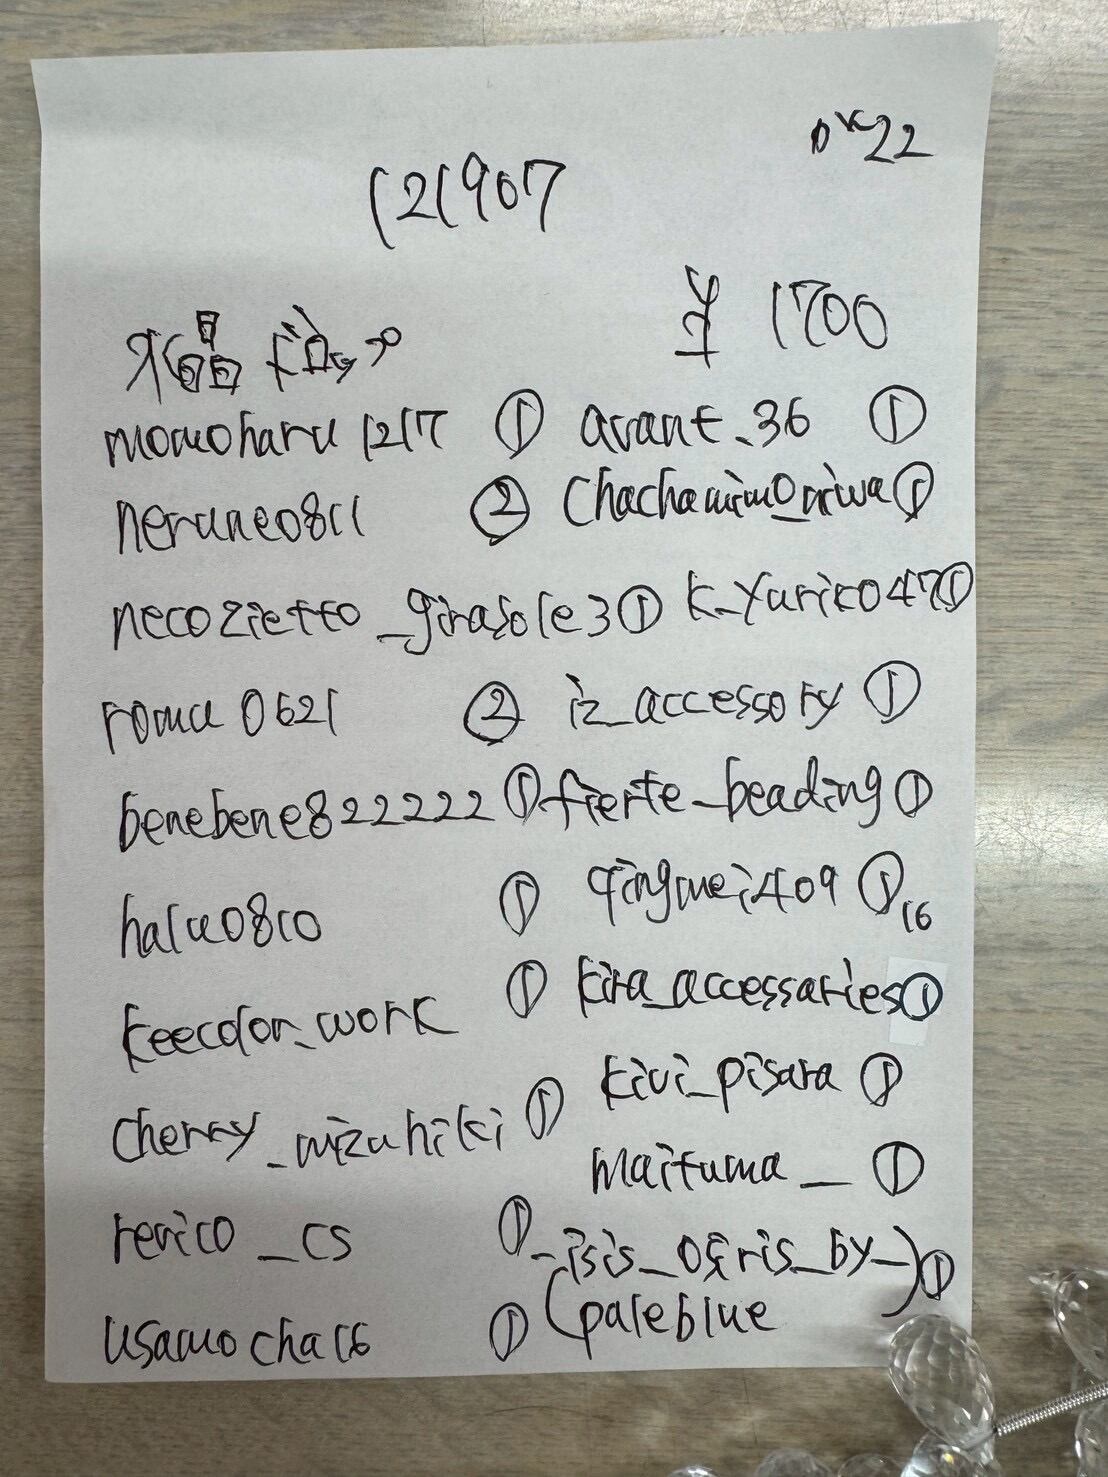 ok22
121907
水晶ドロップ ¥1700
momoharu1217 ① avant_36 ①
nerune0811 ② chachamimo_niwa ①
necozietto_girasole3 ① k_yuriko47 ①
romu0621 ② iz_accessory ①
benebene822222 ① fierte_beading ①
halu0810 ① qingmei409 ① 16
keecolor_work ① kira_accessaries ①
cherry_mizuhiki ① kivi_pisara ①
maituma_ ①
renico_cs ① _isis_osiris_by_ ①
usamocha16 ① (paleblue)